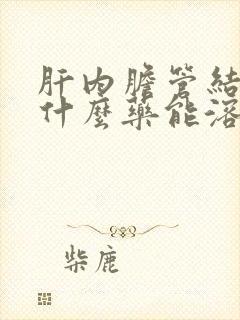 肝内膽管結
什麼藥能溶
柴鹿